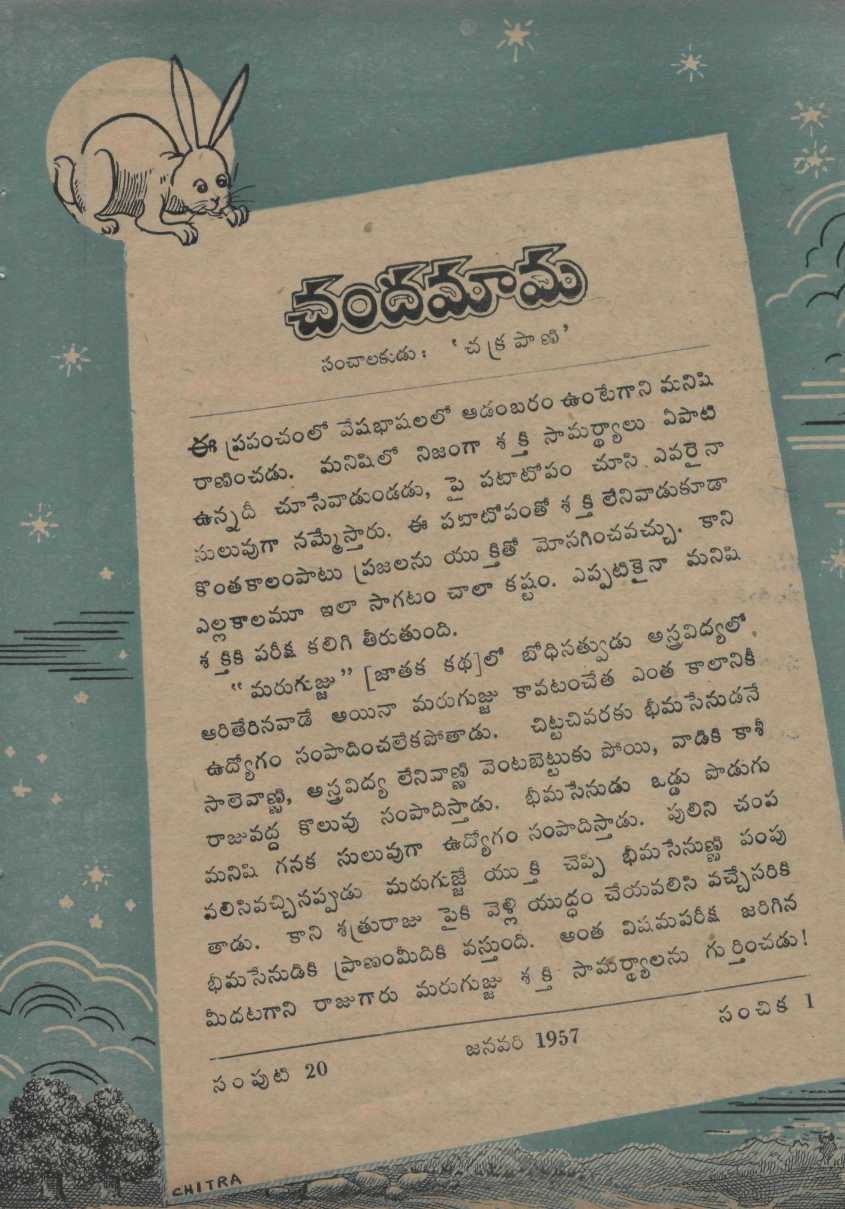 చందమామ
సంచాలకుడు : ' చక్రపాణి '
ఈ ప్రపంచంలో వేషభాషలలో ఆడంబరం ఉంటేగాని మనిషి
రాణించడు. మనిషిలో నిజంగా శక్తి సామర్థ్యాలు ఏపాటి
ఉన్నదీ చూసేవాడుండడు, పై పటాటోపం చూసి ఎవరైనా
సులువుగా నమ్మేస్తారు. ఈ పటాటోపంతో శక్తి లేనివాడుకూడా
కొంతకాలంపాటు ప్రజలను యుక్తితో మోసగించవచ్చు. కాని
ఎల్లకాలమూ ఇలా సాగటం చాలా కష్టం. ఎప్పటికైనా మనిషి
శక్తికి పరీక్ష కలిగి తీరుతుంది.
" మరుగుజ్జు " [జాతక కథ]లో బోధిసత్వుడు అస్త్రవిద్యలో
ఆరితేరినవాడే అయినా మరుగుజ్జు కావటంచేత ఎంత కాలానికీ
ఉద్యోగం సంపాదించలేకపోతాడు. చిట్టచివరకు భీమసేనుడనే
సాలెవాణ్ణి, అస్త్రవిద్య లేనివాణ్ణి వెంటబెట్టుకు పోయి, వాడికి కాశీ
రాజువద్ద కొలువు సంపాదిస్తాడు. భీమసేనుడు ఒడ్డు పొడుగు
మనిషి గనక సులువుగా ఉద్యోగం సంపాదిస్తాడు. పులిని చంప
వలిసివచ్చినప్పుడు మరుగుజ్జే యుక్తి చెప్పి భీమసేనుణ్ణి పంపు
తాడు. కాని శత్రురాజు పైకి వెళ్లి యుద్ధం చేయవలిసి వచ్చేసరికి
భీమసేనుడికి ప్రాణంమీదికి వస్తుంది. అంత విషమపరీక్ష జరిగిన
మీదటగాని రాజుగారు మరుగుజ్జు శక్తి సామర్థ్యాలను గుర్తించడు!
సంపుటి 20 జనవరి 1957 సంచిక 1
CHITRA